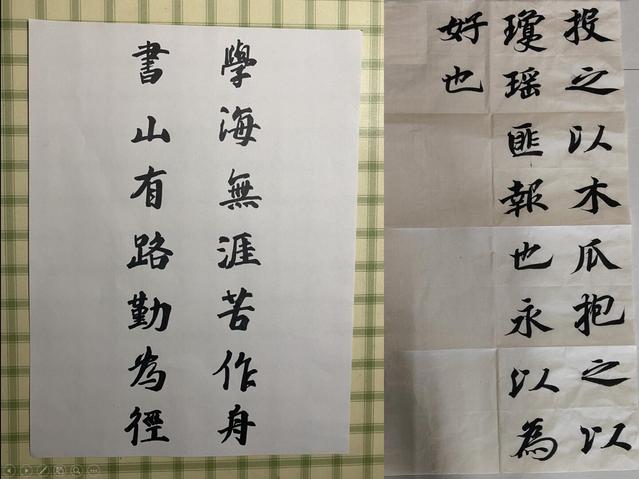 學海無涯苦作身
書山有路勤為徑
投之以木瓜抱之以
瓊瑤匪報也永以為
好也